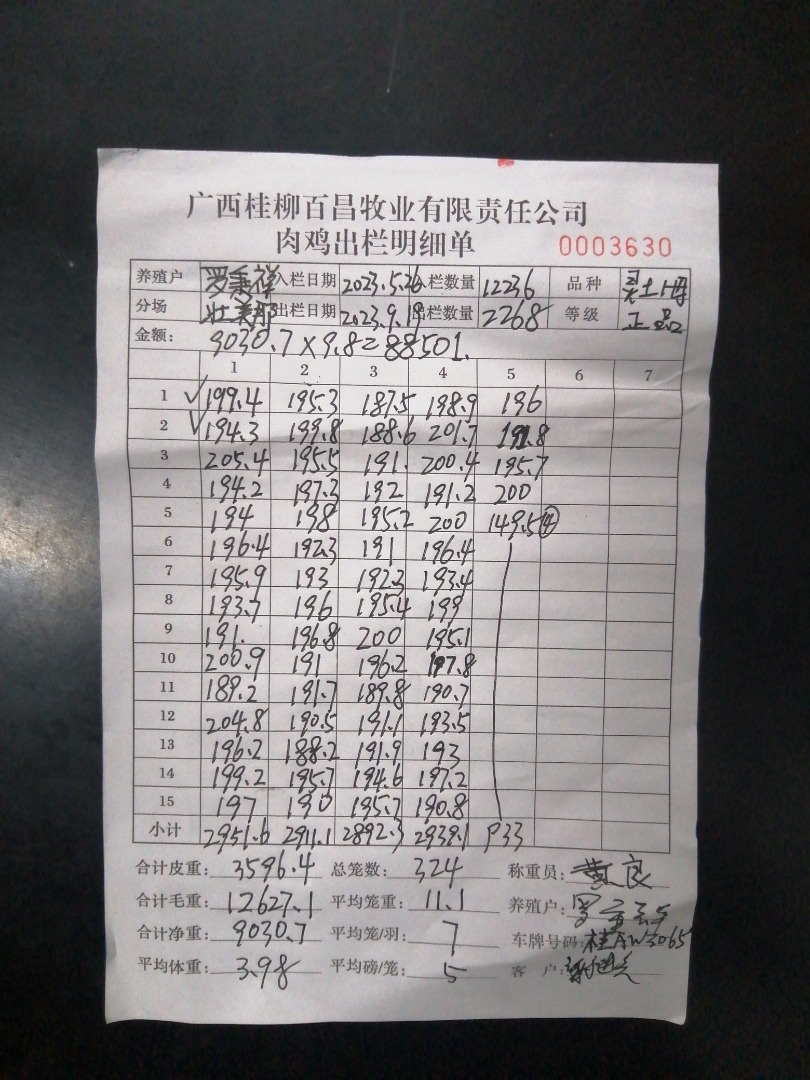 广西桂柳百昌牧业有限责任公司
肉鸡出栏明细单 0003630
养殖户 罗秉祥 入栏日期 2023.5.26 入栏数量 12236 品种 土
分场 出栏日期 2023.9.19 出栏数量 2268 等级 正品
金额: 9030.7×9.8=88501.
1 2 3 4 5 6 7
1 ✓ 199.4 195.3 187.5 198.9 196
2 ✓ 194.3 199.8 188.6 201.7 191.8
3 205.4 195.5 191. 200.4 195.7
4 194.2 197.3 192 191.2 200
5 194 198 195.2 200 149.5 ④
6 196.4 192.3 191 196.4
7 195.9 193 192.3 193.4
8 193.7 196 195.4 199
9 191. 196.8 200 195.1
10 200.9 191 196.2 197.8
11 189.2 191.7 189.8 190.7
12 204.8 190.5 191.1 193.5
13 196.2 188.2 191.9 193
14 199.2 195.7 194.6 197.2
15 197 190 195.7 190.8
小计 2951.6 2911.1 2892.3 2939.1 933
合计皮重: 3596.4 总笼数: 324 称重员: 黄良
合计毛重: 12627.1 平均笼重: 11.1 养殖户: 罗
合计净重: 9030.7 平均笼/羽: 7 车牌号码: 桂AW3065
平均体重: 3.98 平均磅/笼: 5 客户: